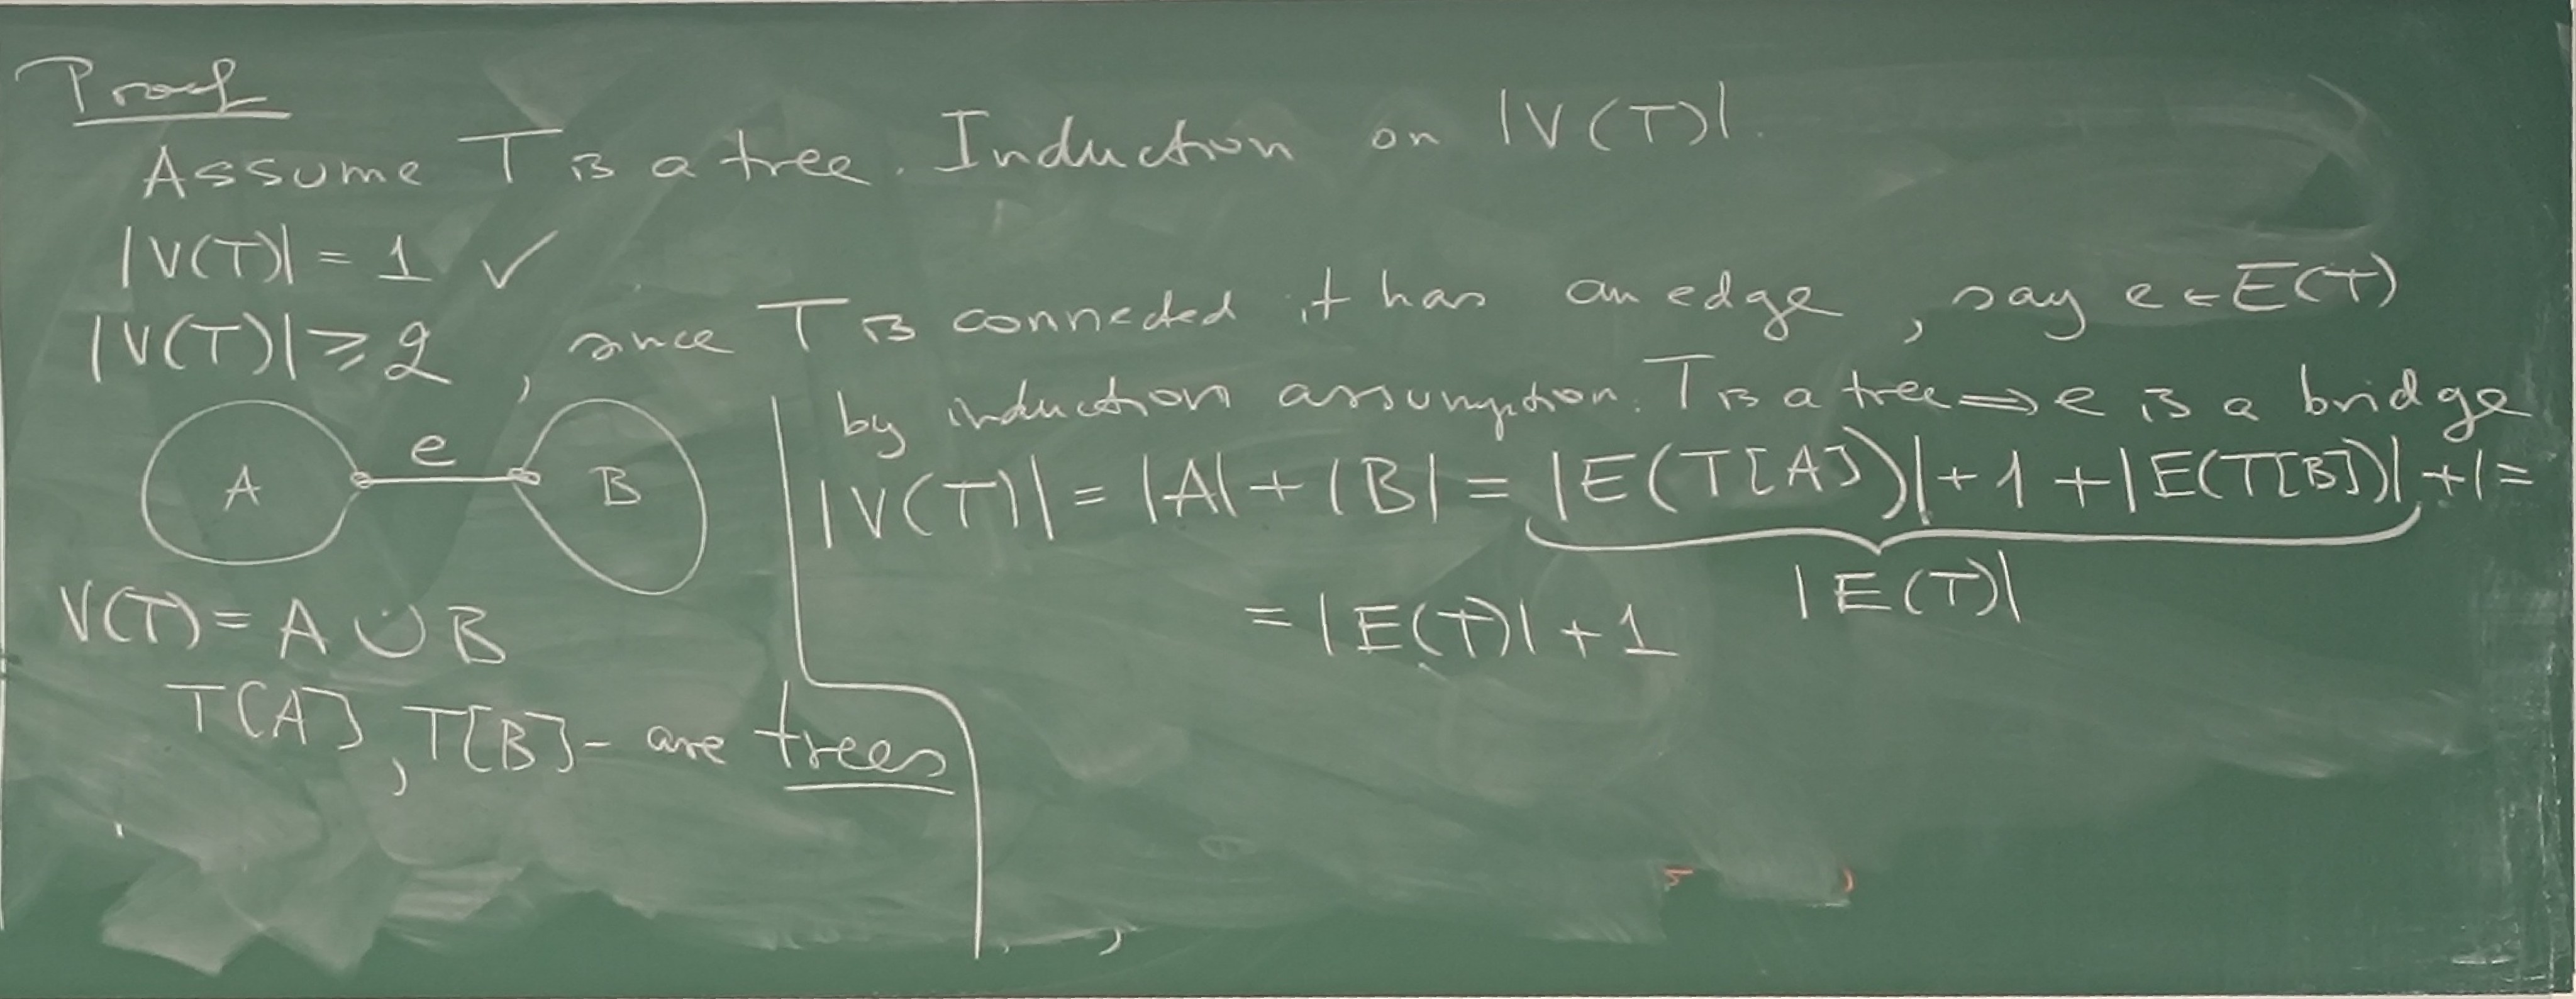 Proof
Assume T is a tree. Induction on |V(T)|.
|V(T)| = 1 ✓
|V(T)| ⩾ 2, since T is connected it has an edge, say e ∈ E(T)
A e B
V(T) = A ∪ B
T[A], T[B] - are trees
by induction assumption. T is a tree ⇒ e is a bridge
|V(T)| = |A| + |B| = |E(T[A])| + 1 + |E(T[B])| + 1 =
|E(T)|
= |E(T)| + 1